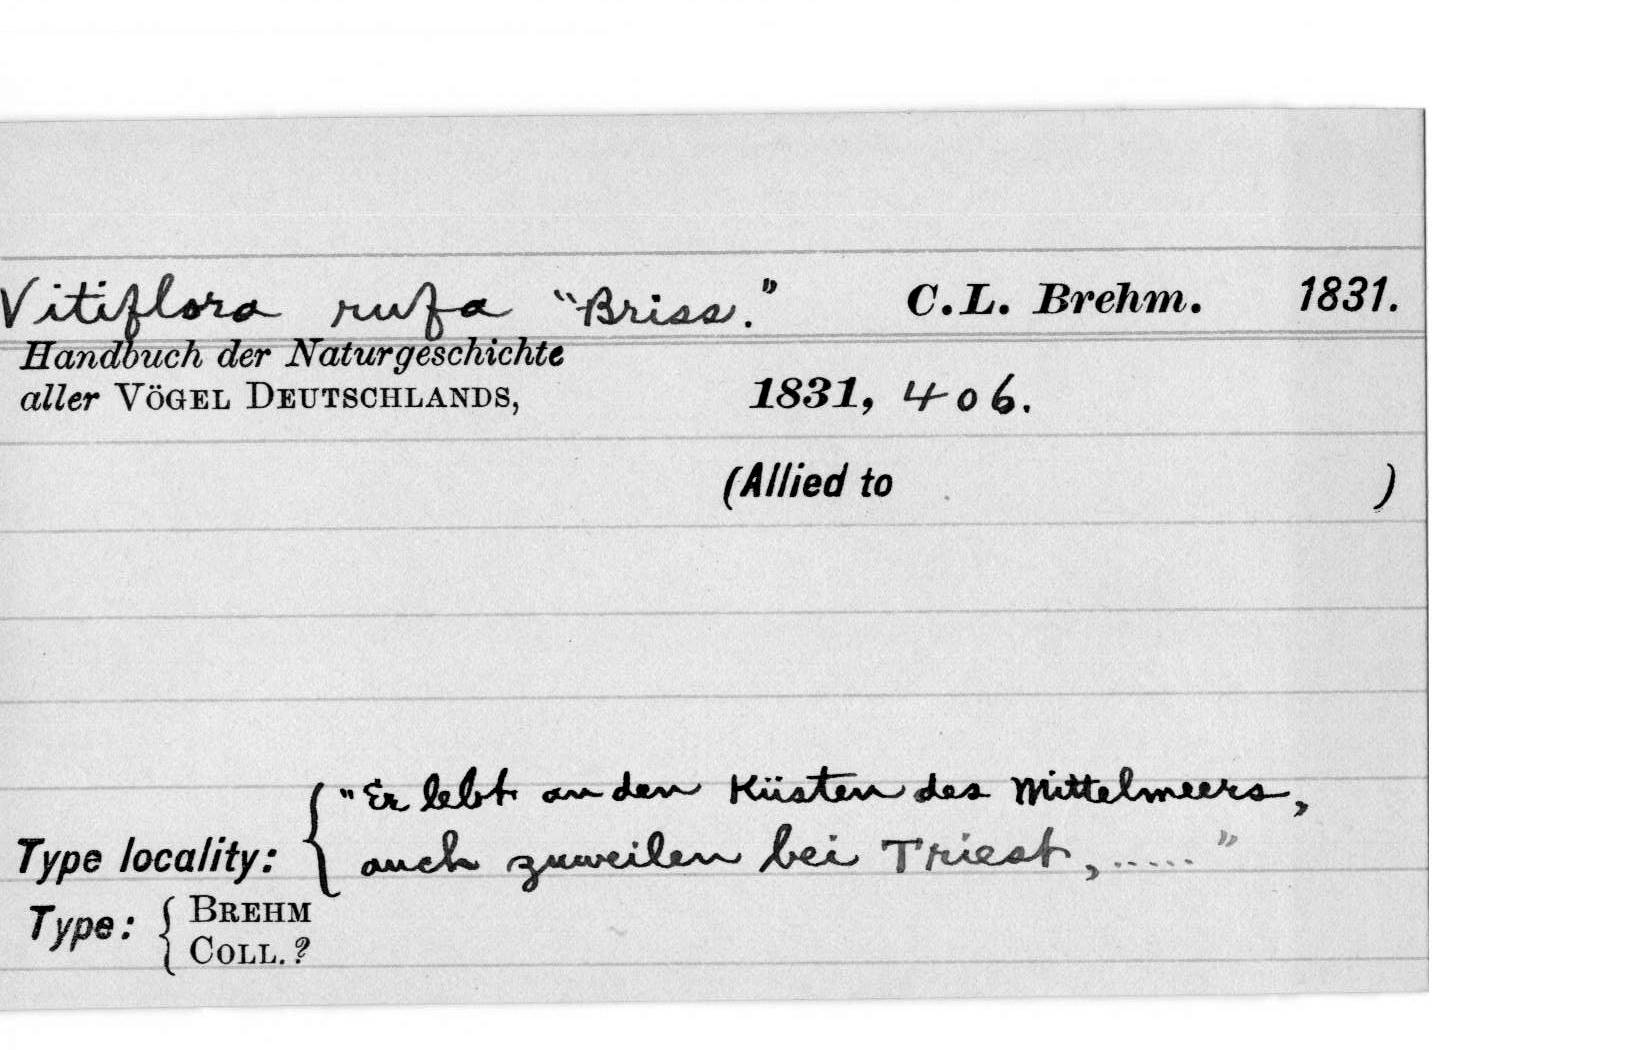 Vitiflora rufa "Briss." C.L. Brehm. 1831.
Handbuch der Naturgeschichte
aller VÖGEL DEUTSCHLANDS, 1831, 406.
(Allied to )
"Er lebt an den Küsten des Mittelmeers,
Type locality: { auch zuweilen bei Triest, ....."
Type: { BREHM
COLL. ?